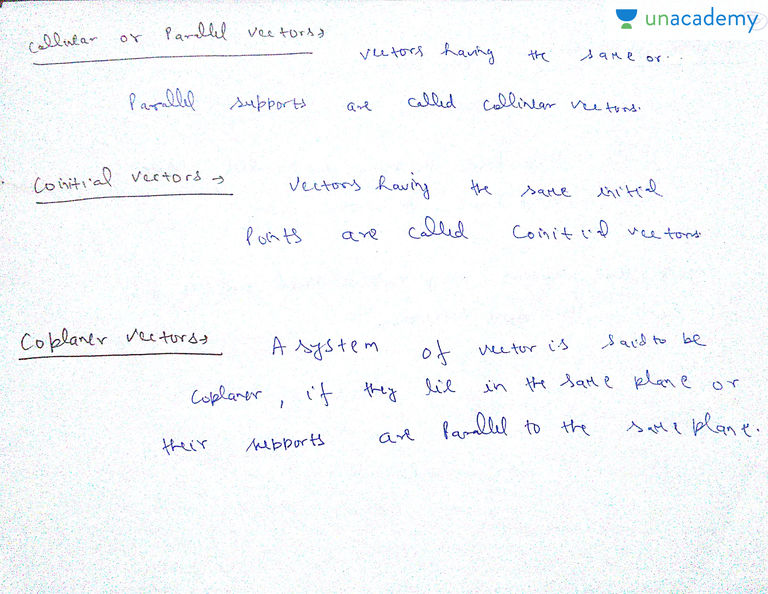 unacademy
Collinear or Parallel vectors→ vectors having the same or..
Parallel supports are called collinear vectors.
Coinitial vectors → Vectors having the same initial
Points are called Coinitial vectors
Coplaner vectors→ A system of vector is said to be
Coplaner, if they lie in the same plane or
their supports are Parallel to the same plane.